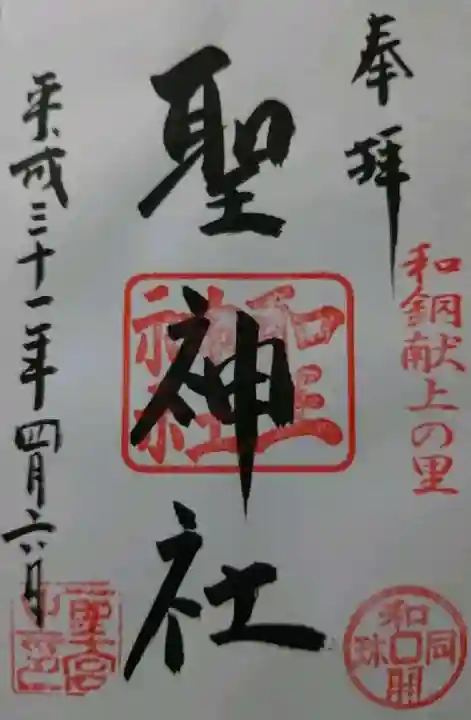 奉拝
和銅献上の里
聖神社
聖神社
平成三十一年四月六日
和同開珎